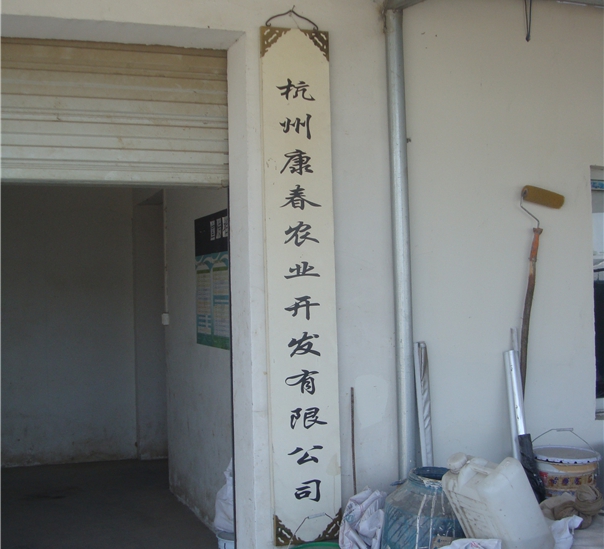 杭州康春农业开发有限公司